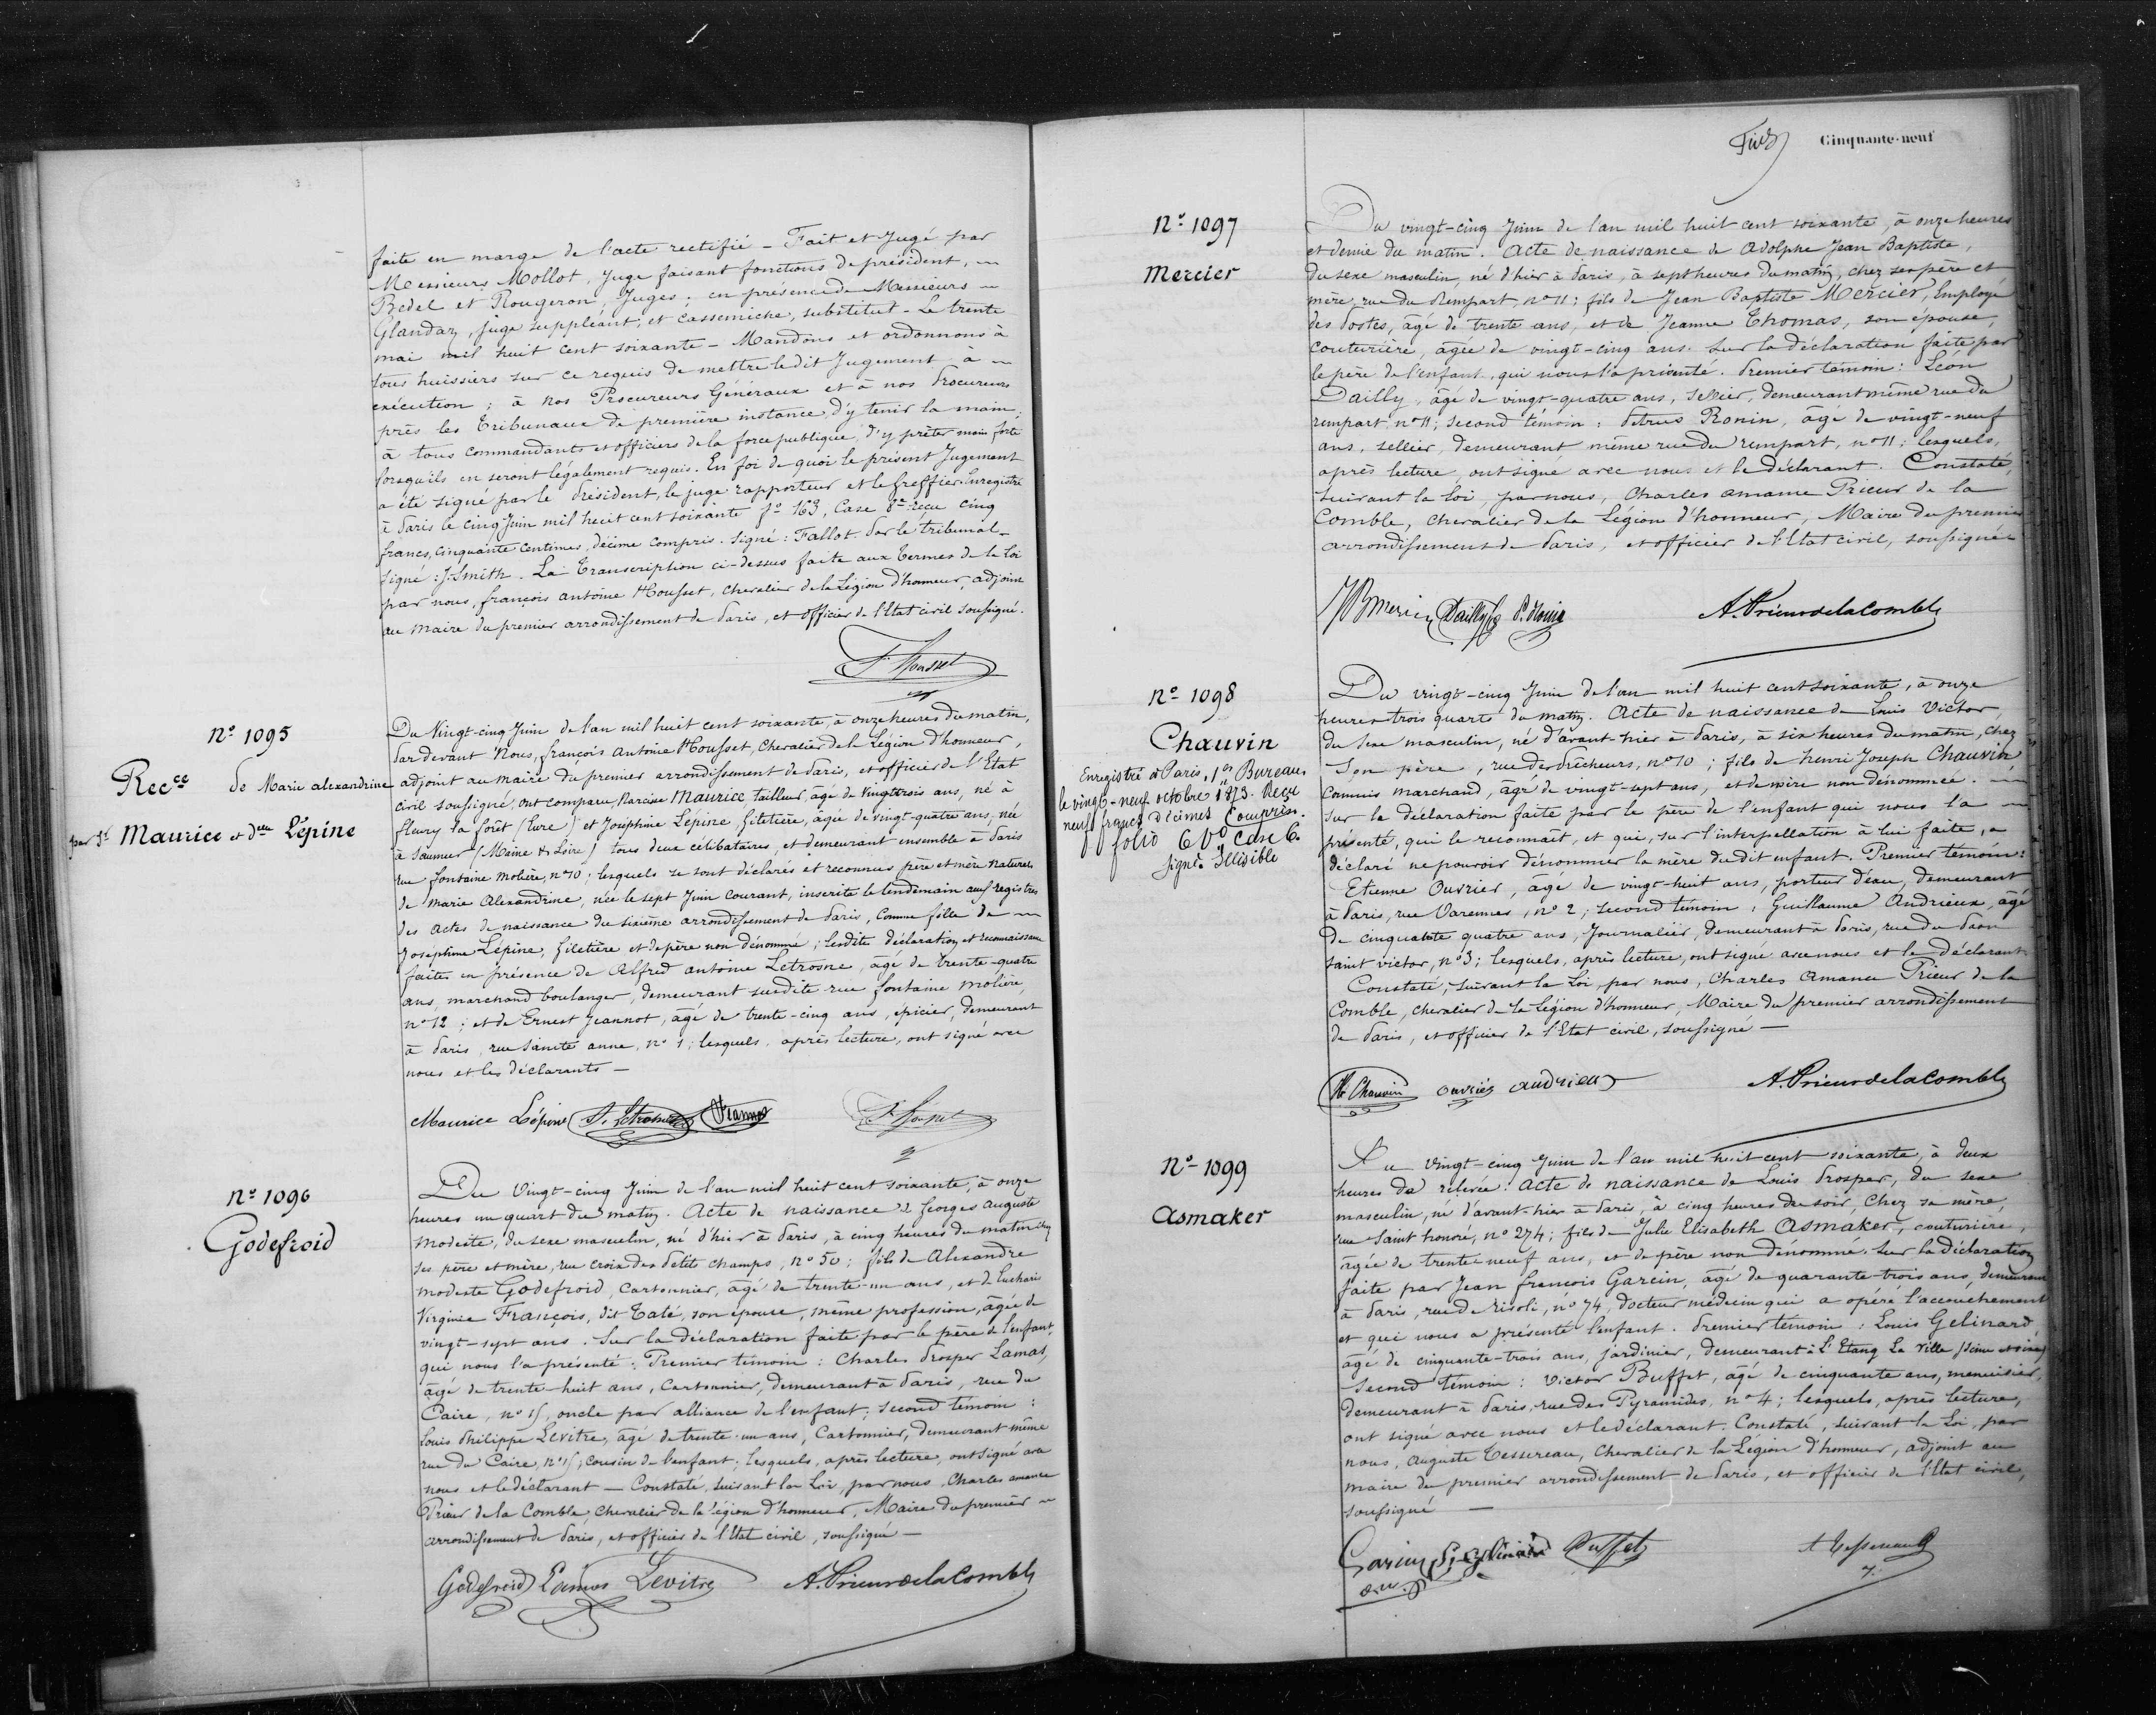 faite en marge de l'acte rectifié - Fait et Jugé par
Messieurs Mollot, Juge faisant fonctions de président,
Bedel et Rougeron, Juges; en présence de Messieurs
Glandaz, juge suppléant; et Cassemiche, substitut - Le trente
mai mil huit cent soixante - Mandons et ordonnons à
tous huissiers sur ce requis de mettre ledit Jugement à
exécution; à nos Procureurs Généraux et à nos Procureurs
près les Tribunaux de première instance d'y tenir la main;
à tous commandants et officiers de la force publique, d'y prêter main forte
lorsqu'ils en seront légalement requis. En foi de quoi le présent Jugement
a été signé par le Président, le juge rapporteur et le greffier. Enregistré
à Paris le cinq Juin mil huit cent soixante fo 163, Case 8e reçu cinq
francs, cinquante centimes, décime compris. Signé: Fallot. Par le tribunal -
signé: J. Smith. La Transcription ci-dessus faite aux termes de la loi
par nous, françois antoine Housset, chevalier de la Légion d'honneur, adjoint
au Maire du premier arrondissement de Paris, et officier de l'Etat civil soussigné.
F. Housset
No 1095
Recce de Marie alexandrine
par Sr Maurice et dlle Lépine
Du Vingt-cinq Juin de l'an mil huit cent soixante, à onze heures du matin,
Par devant Nous, françois Antoine Housset, Chevalier de la Légion d'honneur,
adjoint au maire du premier arrondissement de Paris, et officier de l'Etat
civil soussigné, ont comparu, Narcisse Maurice tailleur, âgé de vingt trois ans, né à
fleury la forêt (Eure) et Joséphine Lépine, giletière, âgée de vingt-quatre ans, née
à Saumur (Maine & Loire) tous deux célibataires, et demeurant ensemble à Paris
rue fontaine Molière, no 10; lesquels se sont déclarés et reconnus père et mère naturels
de Marie Alexandrine, née le sept Juin courant, inscrite le lendemain aux registres
des actes de naissance du sixième arrondissement de Paris, Comme fille de
Joséphine Lépine, giletière et de père non dénommé; lesdites déclaration et reconnaissance
faites en présence de Alfred antoine Letrosne, âgé de trente-quatre
ans, marchand boulanger, demeurant susdite rue fontaine Molière,
no 12; et de Ernest Jeannot, âgé de trente-cinq ans, épicier, demeurant
à Paris, rue Sainte anne, no 1; lesquels, après lecture, ont signé avec
nous et les déclarants -
Maurice Lépine A. Letrosne Jeannot F. Housset
No 1096
Godefroid
Du Vingt-cinq Juin de l'an mil huit cent soixante, à onze
heures un quart du matin. Acte de naissance de Georges Auguste
Modeste, du sexe masculin, né d'hier à Paris, à cinq heures du matin chez
ses père et mère, rue croix des Petits champs, no 50; fils de Alexandre
modeste Godefroid, Cartonnier, âgé de trente-un ans, et de Eucharis
Virginie François, dit Talé, son épouse, même profession, âgée de
vingt-sept ans. Sur la déclaration faite par le père de l'enfant,
qui nous l'a présenté: Premier témoin: Charles Prosper Lamas,
âgé de trente-huit ans, Cartonnier, demeurant à Paris, rue du
Caire, no 15, oncle par alliance de l'enfant; second témoin:
Louis Philippe Levitre, âgé de trente-un ans, Cartonnier, demeurant même
rue du Caire, no 15, cousin de l'enfant; lesquels, après lecture, ont signé avec
nous et le déclarant - Constaté, suivant la Loi, par nous, Charles amance
Prieur de la Comble, chevalier de la Légion d'honneur, Maire du premier
arrondissement de Paris, et officier de l'Etat civil, soussigné -
Godefroid Lamas Levitre A. Prieur de la Comble
Cinquante-neuf
No 1097
Mercier
Du vingt-cinq Juin de l'an mil huit cent soixante, à onze heures
et demie du matin. Acte de naissance de Adolphe Jean Baptiste,
du sexe masculin, né d'hier à Paris, à sept heures du matin, chez ses père et
mère, rue du Rempart, no 11; fils de Jean Baptiste Mercier, Employé
des Postes, âgé de trente ans, et de Jeanne Thomas, son épouse,
couturière, âgée de vingt-cinq ans. Sur la déclaration faite par
le père de l'enfant, qui nous l'a présenté. Premier témoin: Léon
Dailly, âgé de vingt-quatre ans, sellier, demeurant même rue du
rempart, no 11; second témoin: Petrus Ronin, âgé de vingt-neuf
ans, sellier, demeurant même rue du rempart, no 11; lesquels,
après lecture, ont signé avec nous et le déclarant. Constaté,
suivant la Loi, par nous, Charles amance Prieur de la
Comble, chevalier de la Légion d'honneur, Maire du premier
arrondissement de Paris, et officier de l'Etat civil, soussigné
JB Mercier Dailly P. Ronin A. Prieur de la Comble
No 1098
Chauvin
Enregistré à Paris, 1er Bureau
le vingt-neuf octobre 1873. Reçu
neuf francs Décimes Compris.
folio 6 Vo Case 6.
Signé Illisible
Du vingt-cinq Juin de l'an mil huit cent soixante, à onze
heures trois quarts du matin. Acte de naissance de Louis Victor,
du sexe masculin, né d'avant-hier à Paris, à six heures du matin, chez
son père, rue des Prêcheurs, no 10; fils de henri Joseph Chauvin
Commis marchand, âgé de vingt-sept ans, et de mère non dénommée.
Sur la déclaration faite par le père de l'enfant qui nous l'a
présenté, qui le reconnait, et qui, sur l'interpellation à lui faite, a
déclaré ne pouvoir dénommer la mère dudit enfant. Premier témoin:
Etienne Ouvrier, âgé de vingt-huit ans, porteur d'eau, demeurant
à Paris, rue Varennes, no 2; second témoin, Guillaume Andrieux, âgé
de cinquante quatre ans, Journalier, demeurant à Paris, rue du Paon
saint victor, no 3; lesquels, après lecture, ont signé avec nous et le déclarant
Constaté, suivant la Loi, par nous, Charles Amance Prieur de la
Comble, chevalier de la Légion d'honneur, Maire du premier arrondissement
de Paris, et officier de l'Etat civil, soussigné -
H. Chauvin ouvrier andrieux A. Prieur de la Comble
No 1099
Asmaker
Du vingt-cinq Juin de l'an mil huit cent soixante, à deux
heures de relevée. Acte de naissance de Louis Prosper, du sexe
masculin, né d'avant-hier à Paris, à cinq heures du soir, Chez sa mère,
rue Saint honoré, no 274; fils de Julie Elisabeth Asmaker, couturière,
âgée de trente neuf ans, et de père non dénommé. Sur la Déclaration
faite par Jean françois Garcin, âgé de quarante-trois ans, demeurant
à Paris, rue de Rivoli, no 74, docteur médecin qui a opéré l'accouchement
et qui nous a présenté l'enfant. Premier témoin: Louis Gelinard,
âgé de cinquante-trois ans, Jardinier, demeurant à L'Etang La Ville (Seine et Oise)
Second témoin: Victor Buffet, âgé de cinquante ans, menuisier,
demeurant à Paris, rue des Pyramides, no 4; lesquels, après lecture,
ont signé avec nous et le déclarant. Constaté, suivant la Loi, par
nous, Auguste Tessereau, Chevalier de la Légion d'honneur, adjoint au
maire du premier arrondissement de Paris, et officier de l'Etat civil,
soussigné -
Garcin Gelinard Buffet A Tessereau